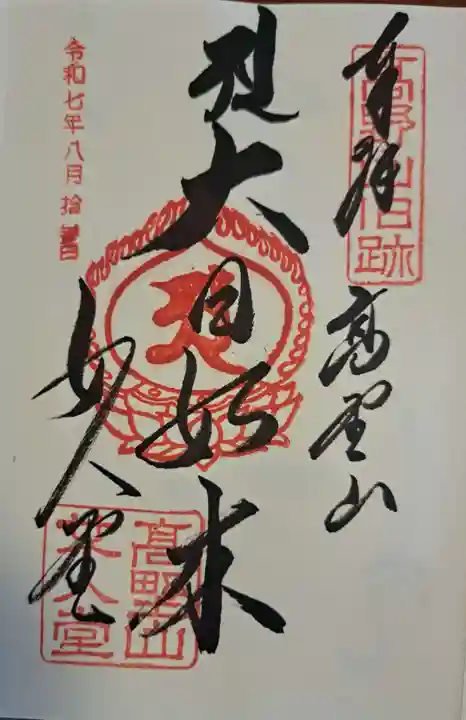 奉拝 高野山
高野山旧跡
大日如来
女人堂
高野山女人堂
令和七年八月拾